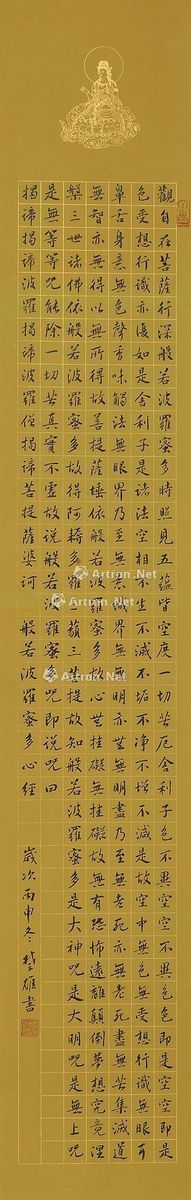 觀自在菩薩行深般若波羅蜜多時照見五蘊皆空度一切苦厄舍利子色不異空空不異色色即是空空即是
色受想行識亦復如是舍利子是諸法空相不生不滅不垢不淨不增不減是故空中無色無受想行識無眼耳
鼻舌身意無色聲香味觸法無眼界乃至無意識界無無明亦無無明盡乃至無老死亦無老死盡無苦集滅道
無智亦無得以無所得故菩提薩埵依般若波羅蜜多故心無挂礙無挂礙故無有恐怖遠離顛倒夢想究竟涅
槃三世諸佛依般若波羅蜜多故得阿耨多羅三藐三菩提故知般若波羅蜜多是大神咒是大明咒是無上咒
是無等等咒能除一切苦真實不虛故說般若波羅蜜多咒即說咒曰
揭諦揭諦波羅揭諦波羅僧揭諦菩提薩婆訶 般若波羅蜜多心經
歲次丙申冬 雄書
Artron.Net
Artron.Net
Artron.Net
Artron.Net